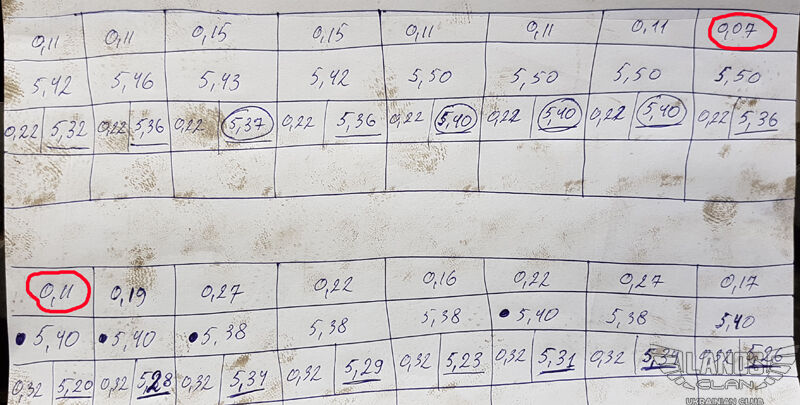 0,11 0,11 0,15 0,15 0,11 0,11 0,11 0,07
5,42 5,46 5,43 5,42 5,50 5,50 5,50 5,50
0,22 5,32 0,22 5,36 0,22 5,37 0,22 5,36 0,22 5,40 0,22 5,40 0,22 5,40 0,22 5,36
0,11 0,19 0,27 0,22 0,16 0,22 0,27 0,17
5,40 5,40 5,38 5,38 5,38 5,40 5,38 5,40
0,32 5,20 0,32 5,28 0,32 5,34 0,32 5,29 0,32 5,23 0,32 5,31 0,32
LANOS
CLAN
UKRAINIAN CLUB